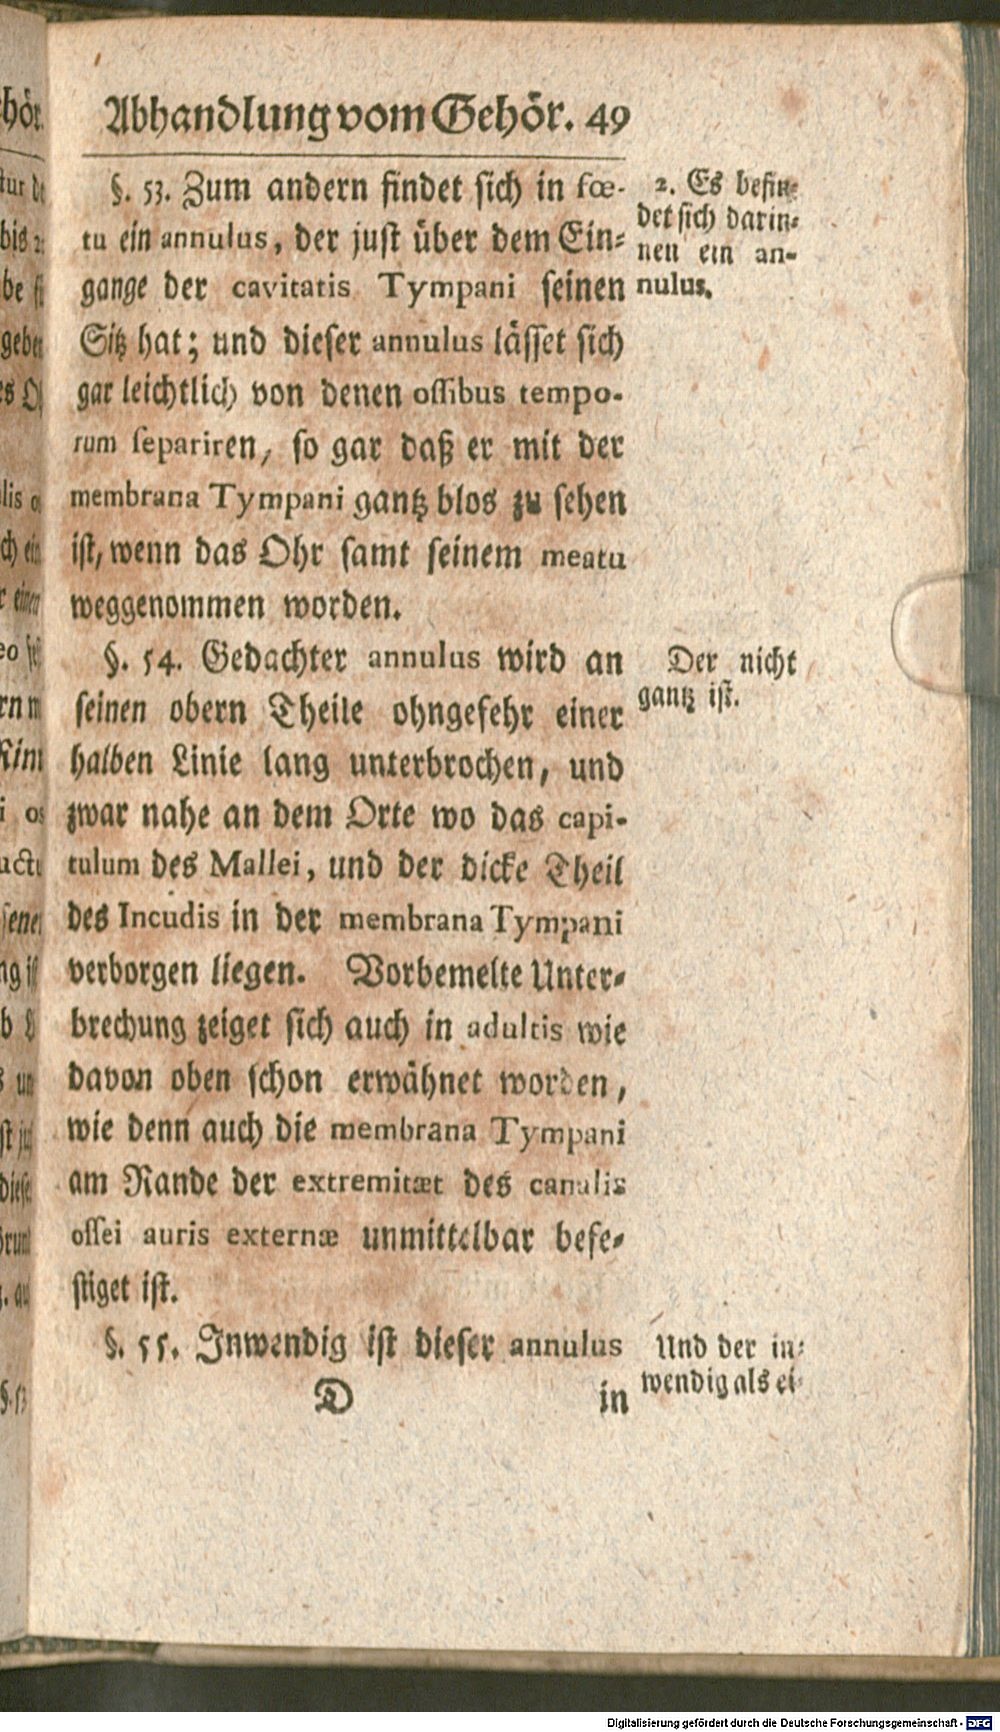 Abhandlung vom Gehör. 49
§. 53. Zum andern findet sich in fœ-
tu ein annulus, der just über dem Ein-
gange der cavitatis Tympani seinen
Sitz hat; und dieser annulus lässet sich
gar leichtlich von denen ossibus tempo-
rum separiren, so gar daß er mit der
membrana Tympani gantz blos zu sehen
ist, wenn das Ohr samt seinem meatu
weggenommen worden.
§. 54. Gedachter annulus wird an
seinen obern Theile ohngefehr einer
halben Linie lang unterbrochen, und
zwar nahe an dem Orte wo das capi-
tulum des Mallei, und der dicke Theil
des Incudis in der membrana Tympani
verborgen liegen. Vorbemelte Unter-
brechung zeiget sich auch in adultis wie
davon oben schon erwähnet worden,
wie denn auch die membrana Tympani
am Rande der extremitæt des canalis
ossei auris externæ unmittelbar befe-
stiget ist.
§. 55. Inwendig ist dieser annulus
D in
2. Es befin-
det sich darin-
nen ein an-
nulus.
Der nicht
gantz ist.
Und der in-
wendig als ei-
Digitalisierung gefördert durch die Deutsche Forschungsgemeinschaft - DFG